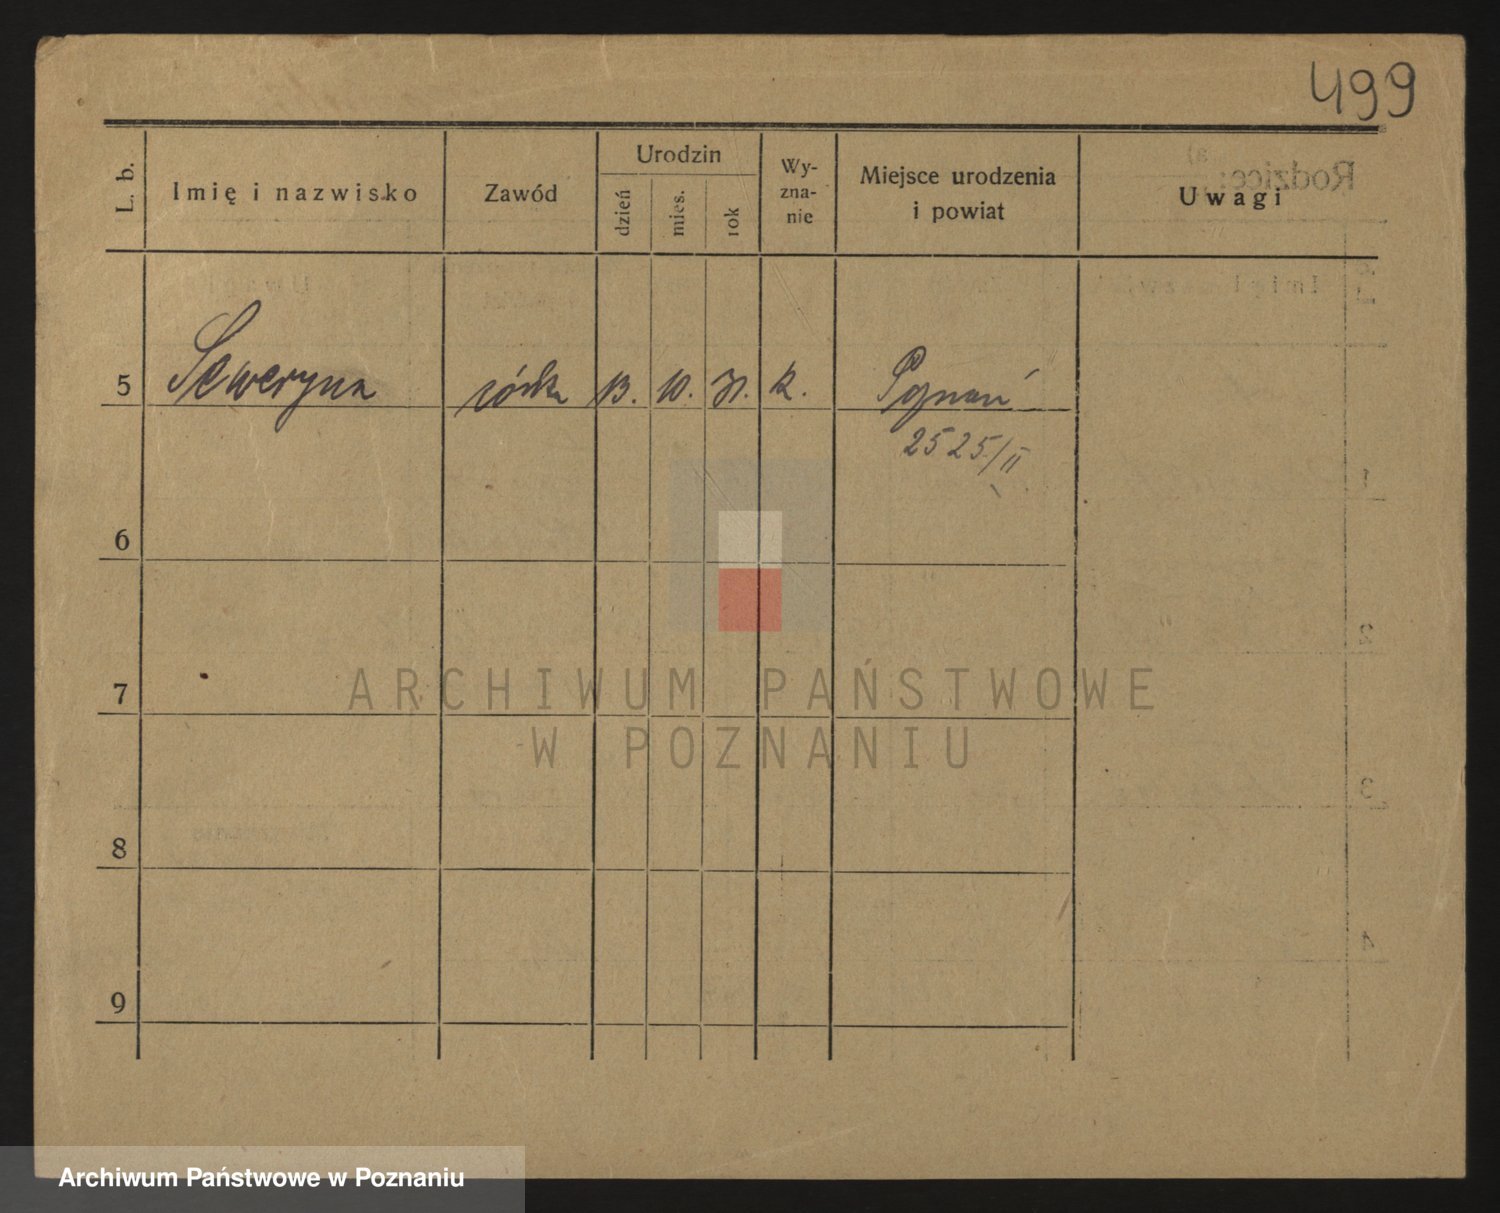 499
L. b.
Imię i nazwisko
Zawód
Urodzin
dzień
mies.
rok
Wy-
zna-
nie
Miejsce urodzenia
i powiat
Uwagi
5 Seweryna córka 13. 10. 31. k. Poznań
2525/II
6
7
8
9
ARCHIWUM PAŃSTWOWE
W POZNANIU
Archiwum Państwowe w Poznaniu